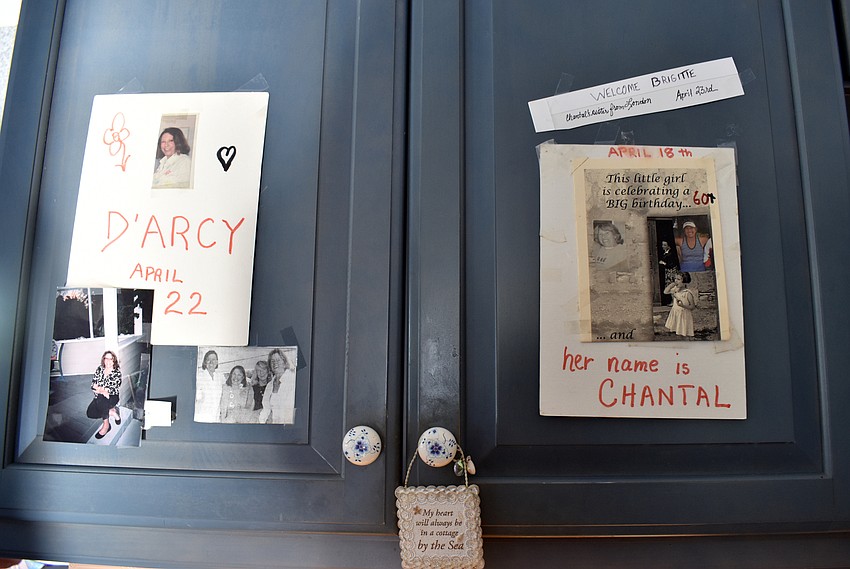 D'ARCY
APRIL
22
WELCOME BRIGITTE
Chantal's sister from London April 23rd
APRIL 18th
This little girl
is celebrating a
BIG birthday... 60th
... and
her name is
CHANTAL
My heart
will always be
in a cottage
by the Sea